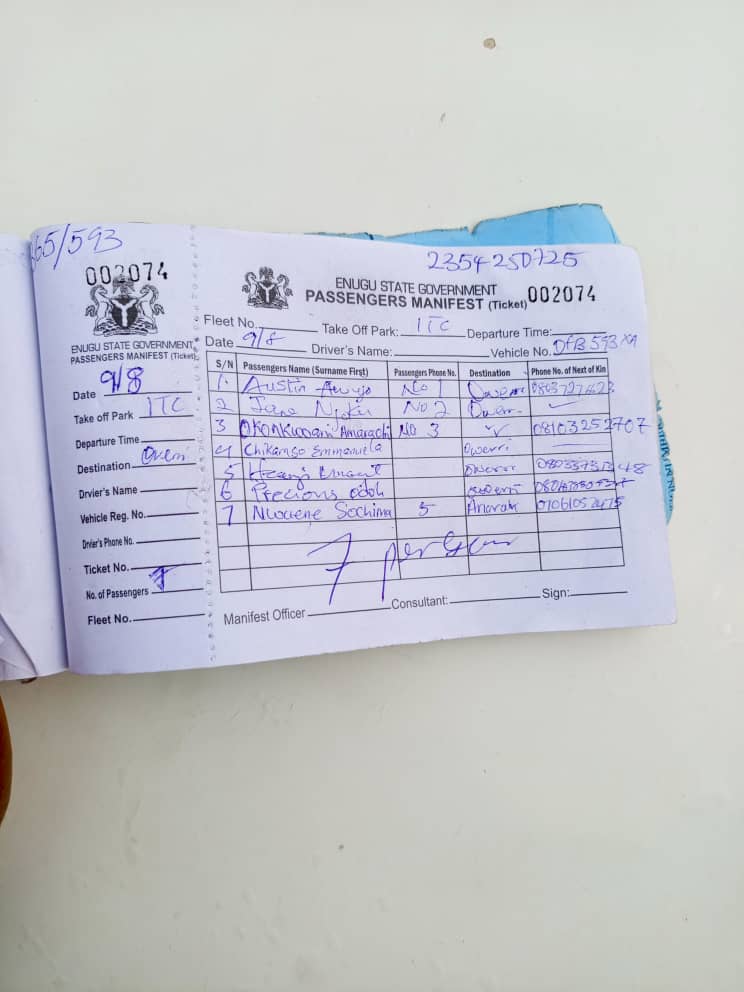 365/593
002074
ENUGU STATE GOVERNMENT
PASSENGERS MANIFEST (Ticket)
Date 9/8
Take off Park ITC
Departure Time
Destination Oweri
Drvier's Name
Vehicle Reg. No.
Driver's Phone No.
Ticket No.
No. of Passengers 7
Fleet No.
2354250725
ENUGU STATE GOVERNMENT
PASSENGERS MANIFEST (Ticket) 002074
Fleet No. Take Off Park: ITC Departure Time:
Date 9/8 Driver's Name: Vehicle No. DFB 593 XA
S/N Passengers Name (Surname First) Passengers Phone No. Destination Phone No. of Next of Kin
1. Austin No 1 Owerri
2 Jane No 2 Owerri
3 Amarachi No 3 08103252707
4 Chikamso Emmanuela Owerri
5 Owerri
6 Precious odoh
7 Nwaene Sochima 5
7 person
Manifest Officer Consultant: Sign: